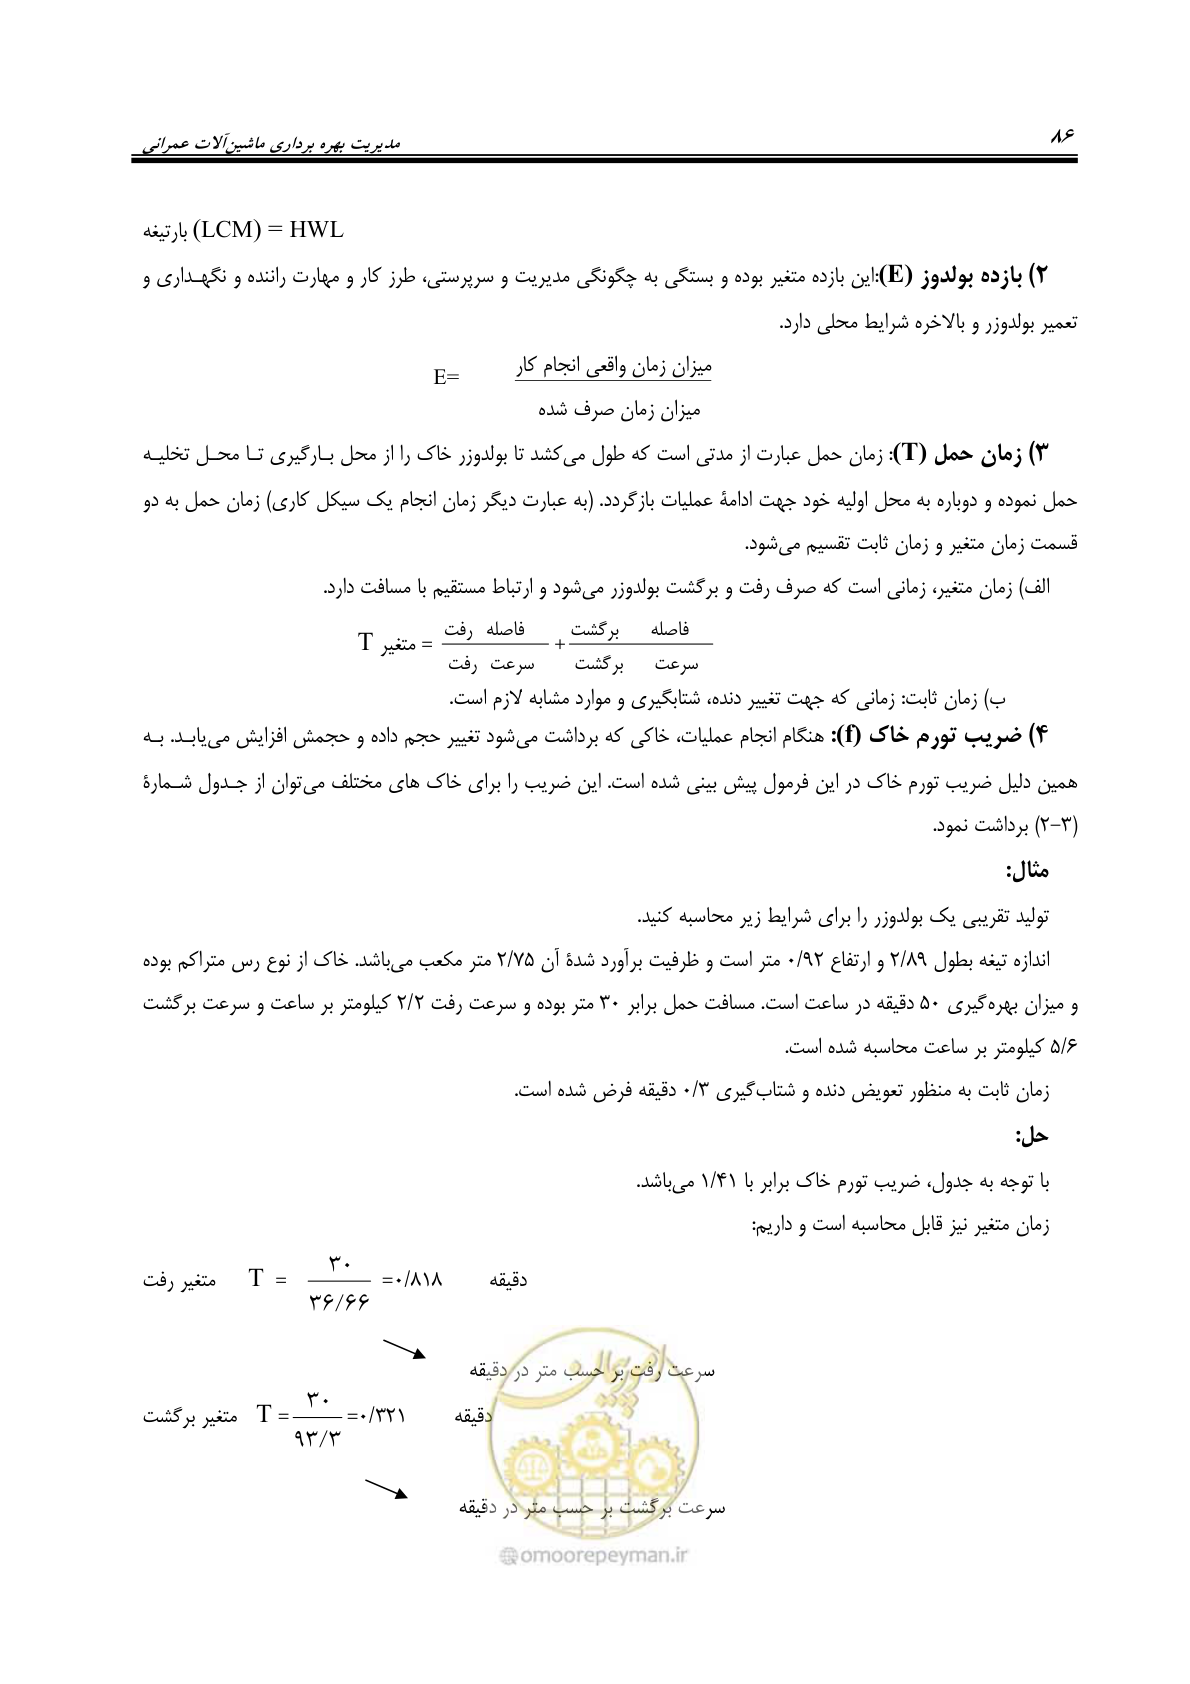 ۸۶
مدیریت بهره برداری ماشین‌آلات عمرانی
بارتیغه (LCM) = HWL
۲) بازده بولدوز (E):این بازده متغیر بوده و بستگی به چگونگی مدیریت و سرپرستی، طرز کار و مهارت راننده و نگهـداری و
تعمیر بولدوزر و بالاخره شرایط محلی دارد.
میزان زمان واقعی انجام کار
E=
میزان زمان صرف شده
۳) زمان حمل (T): زمان حمل عبارت از مدتی است که طول می‌کشد تا بولدوزر خاک را از محل بـارگیری تـا محـل تخلیـه
حمل نموده و دوباره به محل اولیه خود جهت ادامهٔ عملیات بازگردد. (به عبارت دیگر زمان انجام یک سیکل کاری) زمان حمل به دو
قسمت زمان متغیر و زمان ثابت تقسیم می‌شود.
الف) زمان متغیر، زمانی است که صرف رفت و برگشت بولدوزر می‌شود و ارتباط مستقیم با مسافت دارد.
فاصله رفت فاصله برگشت
T متغیر = +
سرعت رفت سرعت برگشت
ب) زمان ثابت: زمانی که جهت تغییر دنده، شتابگیری و موارد مشابه لازم است.
۴) ضریب تورم خاک (f): هنگام انجام عملیات، خاکی که برداشت می‌شود تغییر حجم داده و حجمش افزایش می‌یابـد. بـه
همین دلیل ضریب تورم خاک در این فرمول پیش بینی شده است. این ضریب را برای خاک های مختلف می‌توان از جـدول شـمارهٔ
(۳-۲) برداشت نمود.
مثال:
تولید تقریبی یک بولدوزر را برای شرایط زیر محاسبه کنید.
اندازه تیغه بطول ۲/۸۹ و ارتفاع ۰/۹۲ متر است و ظرفیت برآورد شدهٔ آن ۲/۷۵ متر مکعب می‌باشد. خاک از نوع رس متراکم بوده
و میزان بهره‌گیری ۵۰ دقیقه در ساعت است. مسافت حمل برابر ۳۰ متر بوده و سرعت رفت ۲/۲ کیلومتر بر ساعت و سرعت برگشت
۵/۶ کیلومتر بر ساعت محاسبه شده است.
زمان ثابت به منظور تعویض دنده و شتاب‌گیری ۰/۳ دقیقه فرض شده است.
حل:
با توجه به جدول، ضریب تورم خاک برابر با ۱/۴۱ می‌باشد.
زمان متغیر نیز قابل محاسبه است و داریم:
۳۰
متغیر رفت T = =۰/۸۱۸ دقیقه
۳۶/۶۶
سرعت رفت بر حسب متر در دقیقه
۳۰
متغیر برگشت T = =۰/۳۲۱ دقیقه
۹۳/۳
سرعت برگشت بر حسب متر در دقیقه
امور پیمان
@omoorepeyman.ir